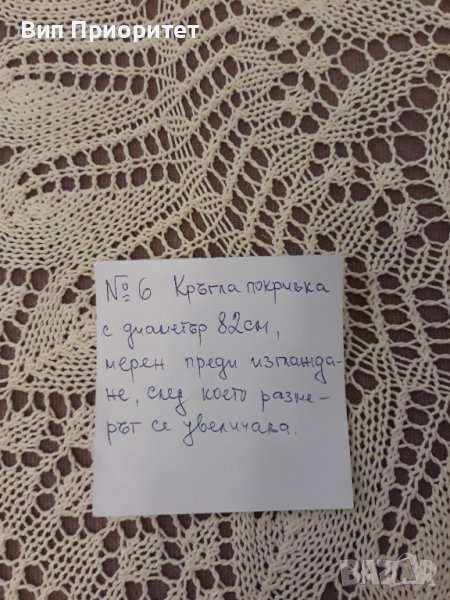 Вип Приоритет
№ 6 Кръгла покривка
с диаметър 82см,
мерен преди изглажда-
не, след което разме-
рът се увеличава.
BAZAR